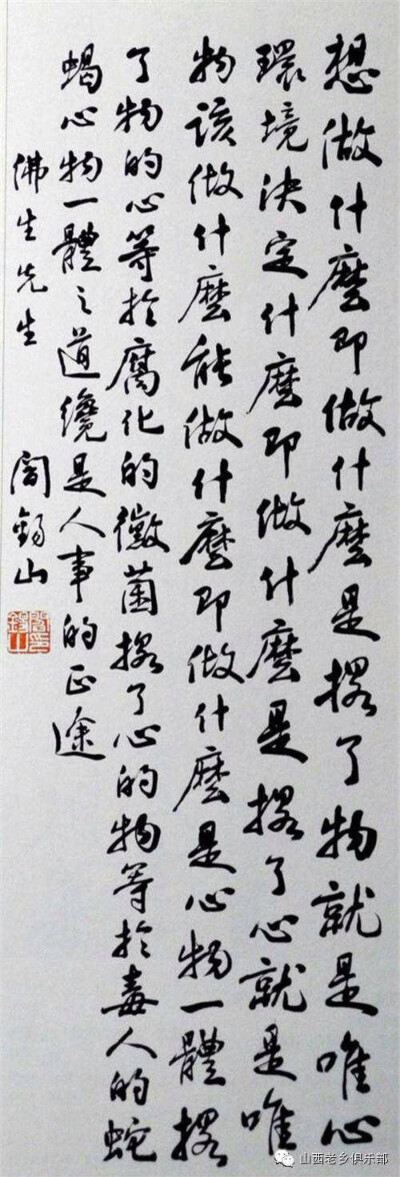 想做什麼即做什麼是撂了物就是唯心
環境決定什麼即做什麼是撂了心就是唯
物該做什麼能做什麼即做什麼是心物一體撂
了物的心等於腐化的黴菌撂了心的物等於毒人的蛇
蝎心物一體之道纔是人事的正途
佛生先生 閻錫山
閻錫山印
山西老乡俱乐部